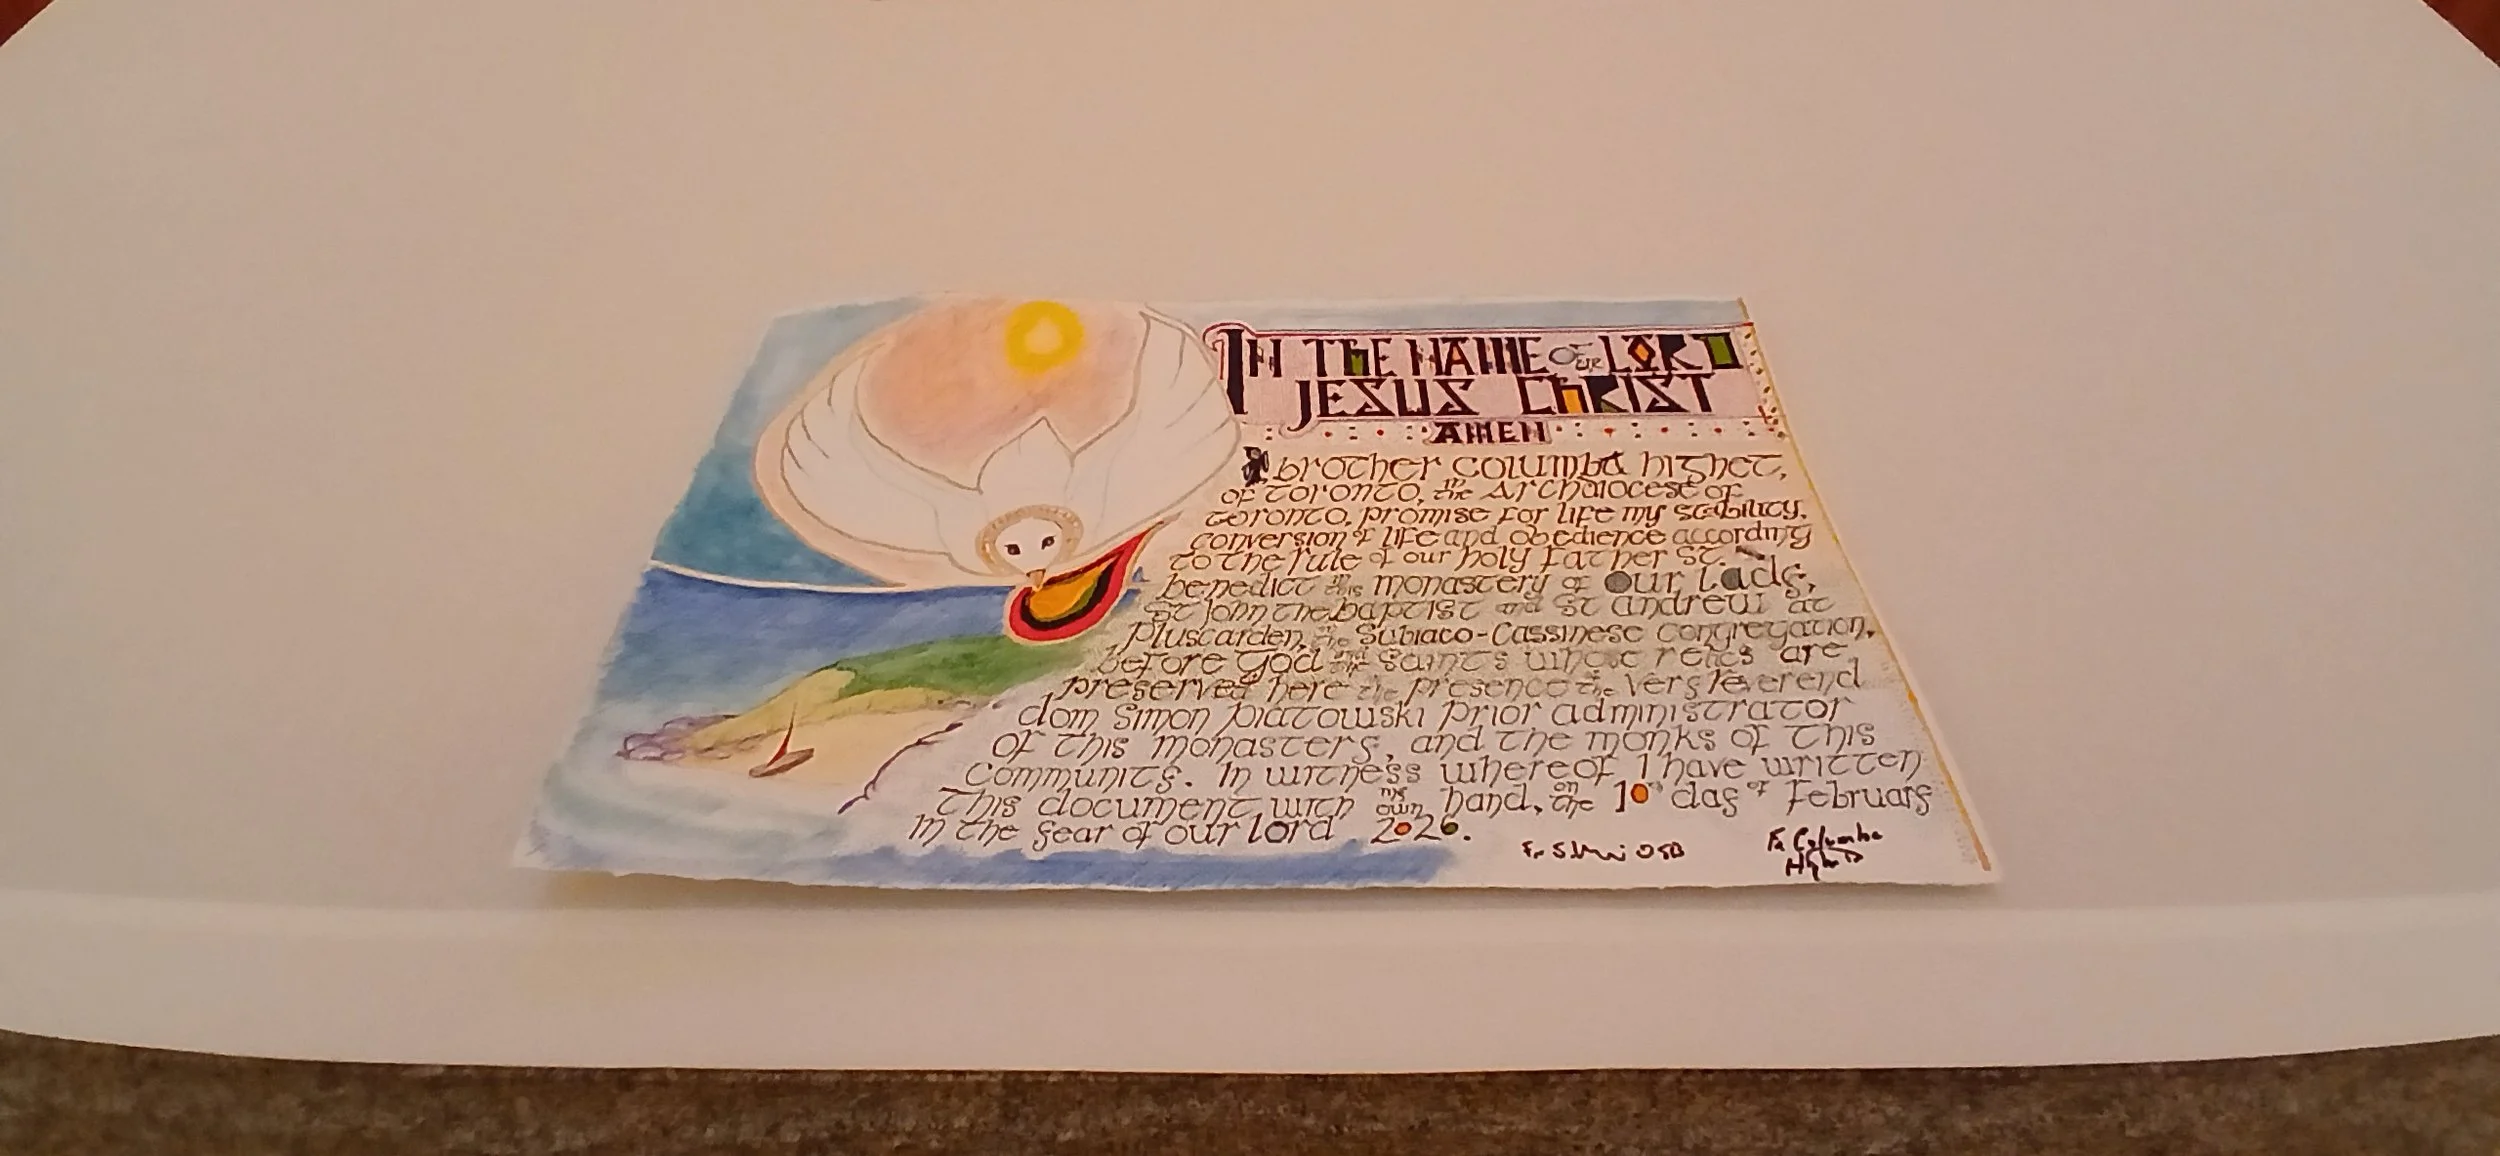 IN THE NAME OF OUR LORD
JESUS CHRIST
AMEN
I brother columba highet,
of toronto, in the Archdiocese of
toronto, promise for life my stability,
conversion of life and obedience according
to the rule of our holy father st.
benedict in this monastery of our lady,
st john the baptist and st andrew at
pluscarden, in the Subiaco-Cassinese congregation,
before God and the saints whose relics are
preserved here in the presence of the very reverend
dom simon piatowski prior administrator
of this monastery, and the monks of this
community. In witness whereof I have written
this document with my own hand, on the 10th day of february
in the year of our lord 2026.
Fr Columba
Highet